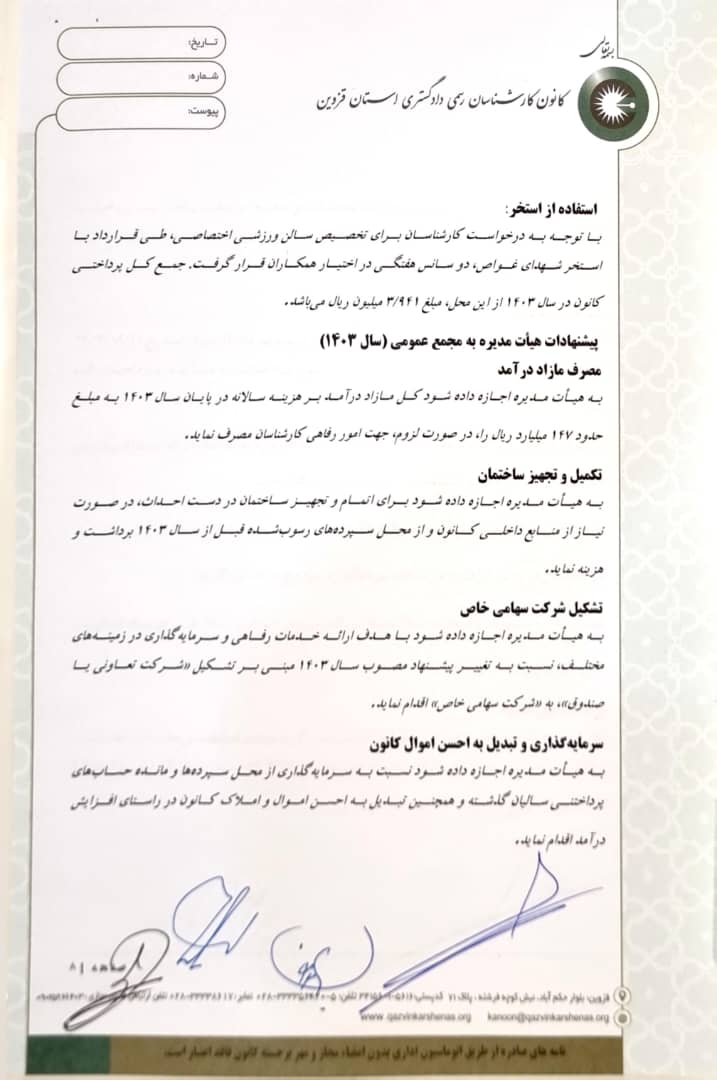 بسمه تعالی
کانون کارشناسان رسمی دادگستری استان قزوین
تاریخ:
شماره:
پیوست:
استفاده از استخر:
با توجه به درخواست کارشناسان برای تخصیص سالن ورزشی اختصاصی، طی قرارداد با
استخر شهدای غواص، دو سانس هفتگی در اختیار همکاران قرار گرفت. جمع کل پرداختی
کانون در سال ۱۴۰۳ از این محل، مبلغ ۳/۹۴۱ میلیون ریال می‌باشد.
پیشنهادات هیأت مدیره به مجمع عمومی (سال ۱۴۰۳)
مصرف مازاد درآمد
به هیأت مدیره اجازه داده شود کل مازاد درآمد بر هزینه سالانه در پایان سال ۱۴۰۳ به مبلغ
حدود ۱۴۷ میلیارد ریال را، در صورت لزوم، جهت امور رفاهی کارشناسان مصرف نماید.
تکمیل و تجهیز ساختمان
به هیأت مدیره اجازه داده شود برای اتمام و تجهیز ساختمان در دست احداث، در صورت
نیاز از منابع داخلی کانون و از محل سپرده‌های رسوب‌شده قبل از سال ۱۴۰۳ برداشت و
هزینه نماید.
تشکیل شرکت سهامی خاص
به هیأت مدیره اجازه داده شود با هدف ارائه خدمات رفاهی و سرمایه‌گذاری در زمینه‌های
مختلف، نسبت به تغییر پیشنهاد مصوب سال ۱۴۰۳ مبنی بر تشکیل «شرکت تعاونی یا
صندوق»، به «شرکت سهامی خاص» اقدام نماید.
سرمایه‌گذاری و تبدیل به احسن اموال کانون
به هیأت مدیره اجازه داده شود نسبت به سرمایه‌گذاری از محل سپرده‌ها و مانده حساب‌های
پرداختنی سالیان گذشته و همچنین تبدیل به احسن اموال و املاک کانون در راستای افزایش
درآمد اقدام نماید.
صفحه | ۸
قزوین، بلوار حکم آباد، نبش کوچه فرشته، پلاک ۷۱ کدپستی
www.qazvinkarshenas.org kanoon@qazvinkarshenas.org
نامه های صادره از طریق اتوماسیون اداری بدون امضاء مجاز و مهر برجسته کانون فاقد اعتبار است.